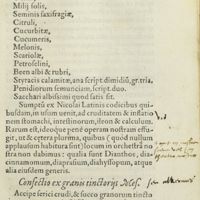 Milij solis,
Seminis saxifragiæ,
Citruli,
Cucurbitæ,
Cucumeris,
Melonis,
Scariolæ,
Petroselini,
Been albi & rubri,
Styracis calamitæ, ana script. dimidiū, gr. tria,
Penidiorum semunciam, script. duo.
Sacchari albissimi quod satis sit.
Sumpta ex Nicolai Latinis codicibus qui-
busdam, in usum uenit, ad cruditatem & inflatio
nem stomachi, intestinorum, iteon & calculum.
Rarum est, ideoque penè operam nostram effu-
git, ut & cetera plurima, quibus (quod nunc
applausum habitura sint) locum in orchestra no
stra non dabimus: qualia sunt Dianthos, dia-
cinnamomum, diaprassium, disthyssopum, atque
alia eiusdem generis.
Confectio ex granis tinctorijs Mes.
Accipe serici crudi, & succo granorum tincto